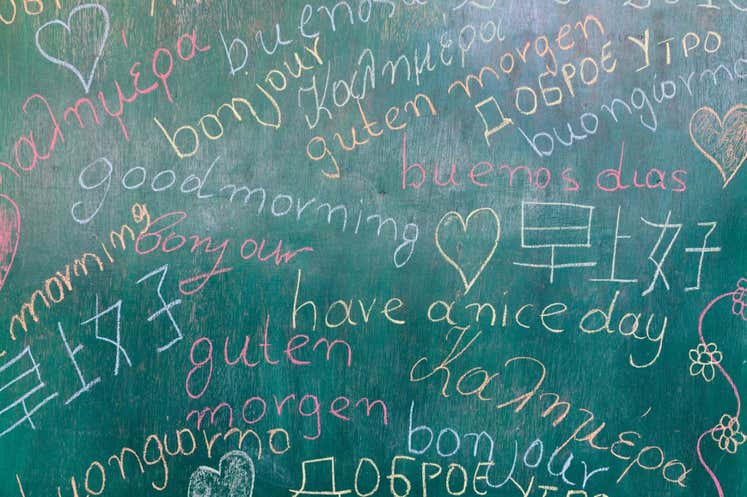 buenos
Καλημέρα
Καλημέρα
bonjour
guten morgen
ДОБРОЕ УТРО
buongiorno
good morning
buenos dias
早上好
morning
bonjour
have a nice day
早上好
guten
morgen
Καλημέρα
buongiorno
bonjour
ДОБРОЕ УТРО